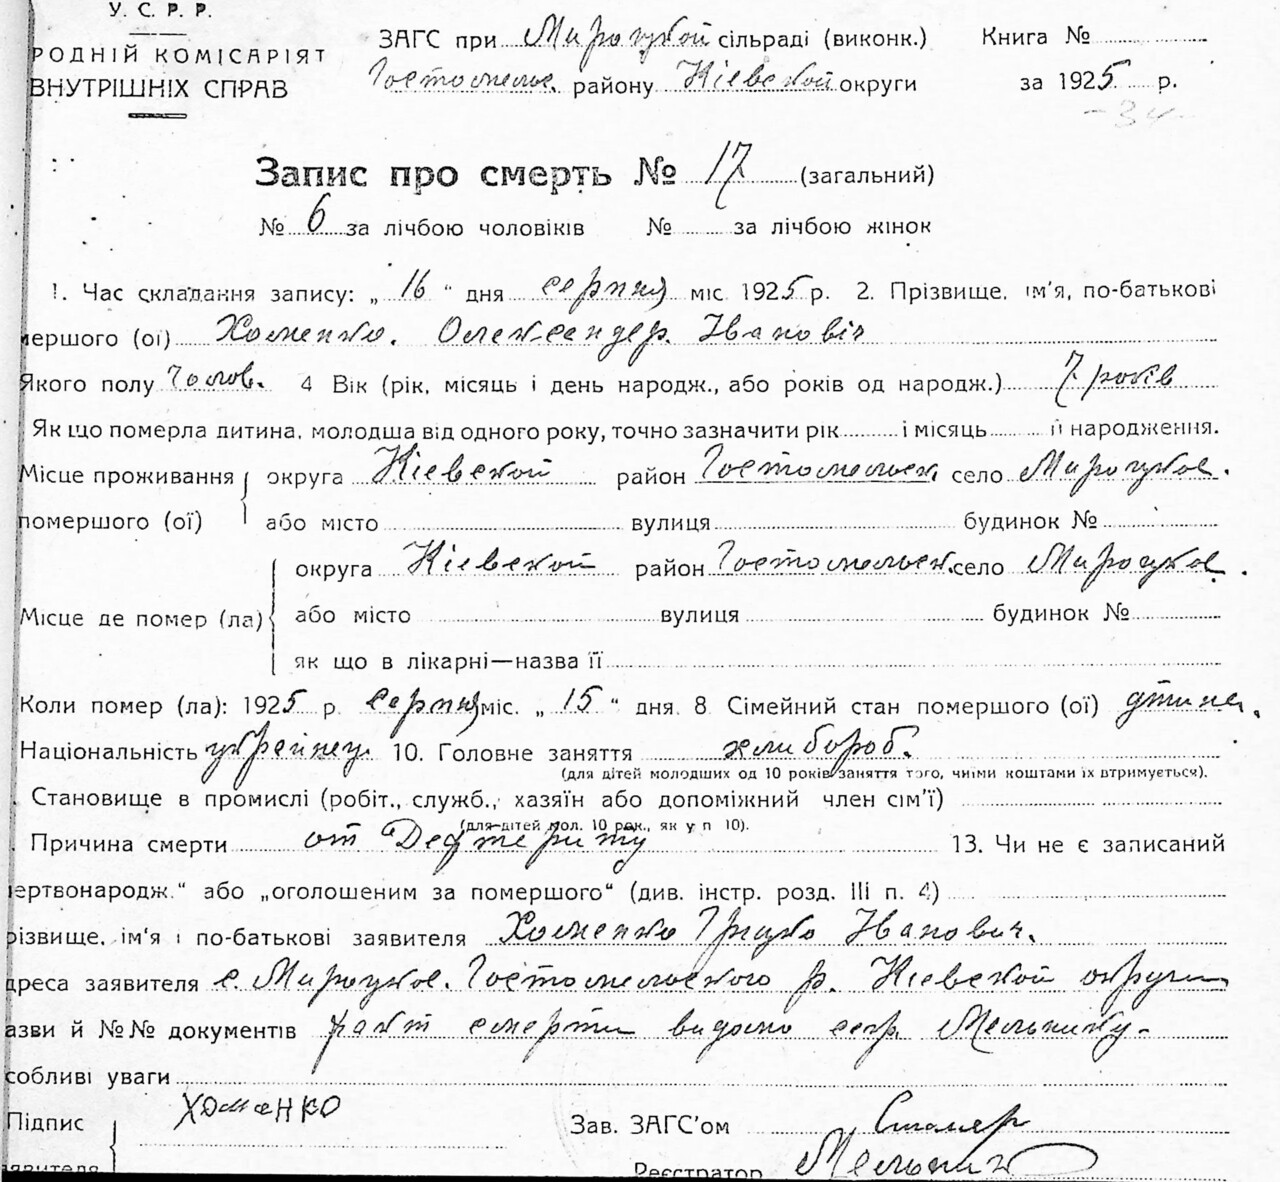 У. С. Р. Р.
РОДНІЙ КОМІСАРІЯТ
ВНУТРІШНІХ СПРАВ
ЗАГС при Мироцкой сільраді (виконк.) Книга №
Гостомельс. району Кіевской округи за 1925 р.
-34-
Запис про смерть № 17 (загальний)
№ 6 за лічбою чоловіків № за лічбою жінок
1. Час складання запису: „ 16 " дня серпня міс 1925 р. 2. Прізвище, ім'я, по-батькові
мершого (ої) Хоменко. Олександер. Іванович
Якого полу чолов. 4 Вік (рік, місяць і день народж., або років од народж.) 7 років
Як що померла дитина, молодша від одного року, точно зазначити рік і місяць її народження.
Місце проживання округа Кіевской район Гостомельск. село Мироцкое.
помершого (ої) або місто вулиця будинок №
округа Кіевской район Гостомельск. село Мироцкое.
Місце де помер (ла) або місто вулиця будинок №
як що в лікарні—назва її
Коли помер (ла): 1925 р. серпня міс. „ 15 " дня. 8. Сімейний стан помершого (ої) дтина.
Національність украйнец. 10. Головне заняття хлибороб.
(для дітей молодших од 10 років заняття того, чиїми коштами їх втримується).
Становище в промислі (робіт., служб., хазяїн або допоміжний член сім'ї)
(для дітей мол. 10 рок., як у п 10).
Причина смерти от Дефтериту 13. Чи не є записаний
ертвонародж." або „оголошеним за помершого" (див. інстр. розд. III п. 4)
різвище, ім'я і по-батькові заявителя Хоменко Грицко Іванович.
дреса заявителя с. Мироцкое. Гостомельского р. Кіевской округи
азви й №№ документів факт смерти видомо секр Мельнику.
собливі уваги
Підпис Хоменко Зав. ЗАГС'ом Столяр
аявителя Реєстратор Мельник